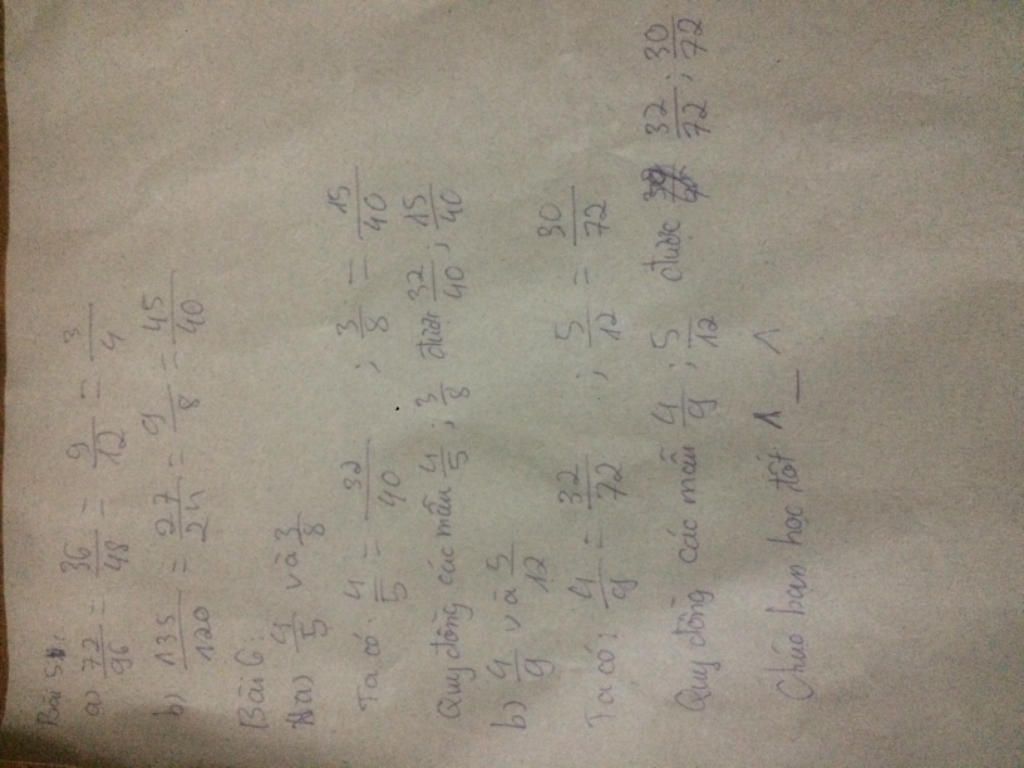 Bài 5:
a) 72/96 = 36/48 = 9/12 = 3/4
b) 135/120 = 27/24 = 9/8 = 45/40
Bài 6:
a) 4/5 và 3/8
Ta có: 4/5 = 32/40 ; 3/8 = 15/40
Quy đồng các mẫu 4/5 ; 3/8 được 32/40 ; 15/40
b) 4/9 và 5/12
Ta có: 4/9 = 32/72 ; 5/12 = 30/72
Quy đồng các mẫu 4/9 ; 5/12 được 32/72 ; 30/72
Chúc bạn học tốt ^ _ ^